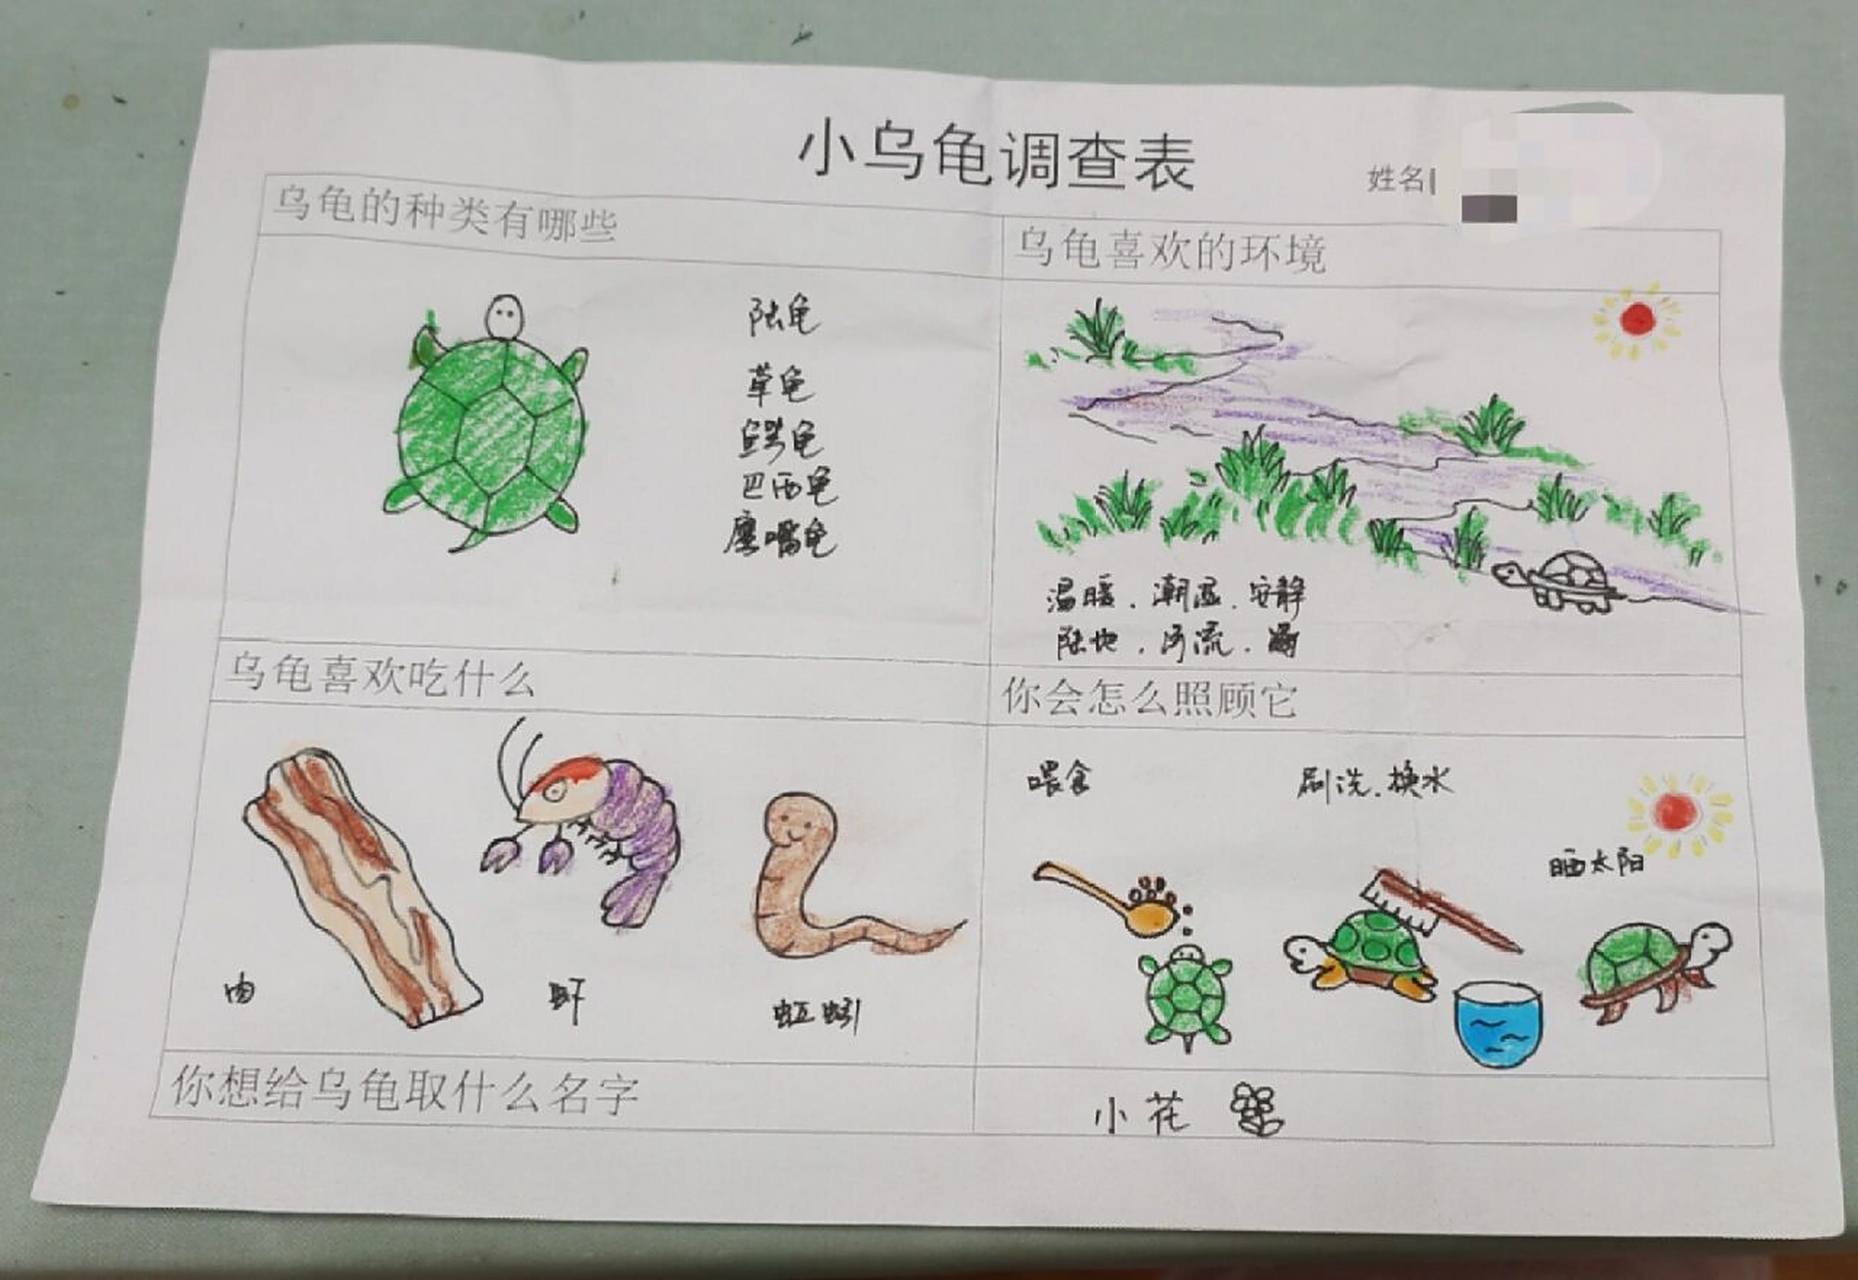 小乌龟调查表
姓名
乌龟的种类有哪些
陆龟
草龟
鳄龟
巴西龟
鹰嘴龟
乌龟喜欢的环境
温暖、潮湿、安静
陆地、河流、
乌龟喜欢吃什么
肉
虾
蚯蚓
你会怎么照顾它
喂食
刷洗、换水
晒太阳
你想给乌龟取什么名字
小花